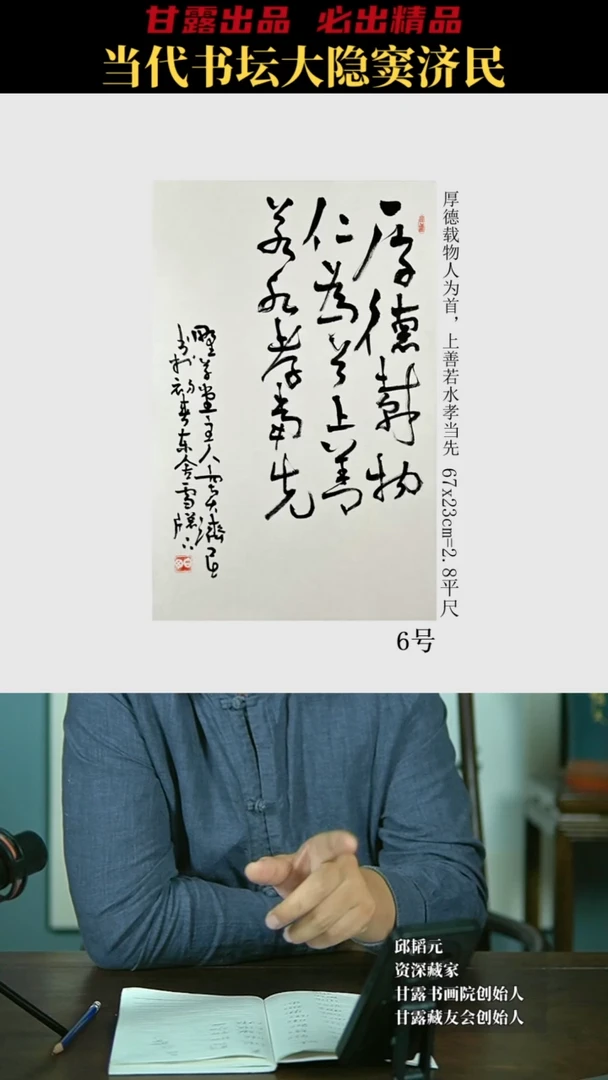 甘露出品 必出精品
当代书坛大隐窦济民
厚德载物
仁為首上善
若水孝當先
野草堂主人窦济民
厚德载物人为首，上善若水孝当先 67x23cm=2.8平尺
6号
邱韬元
资深藏家
甘露书画院创始人
甘露藏友会创始人